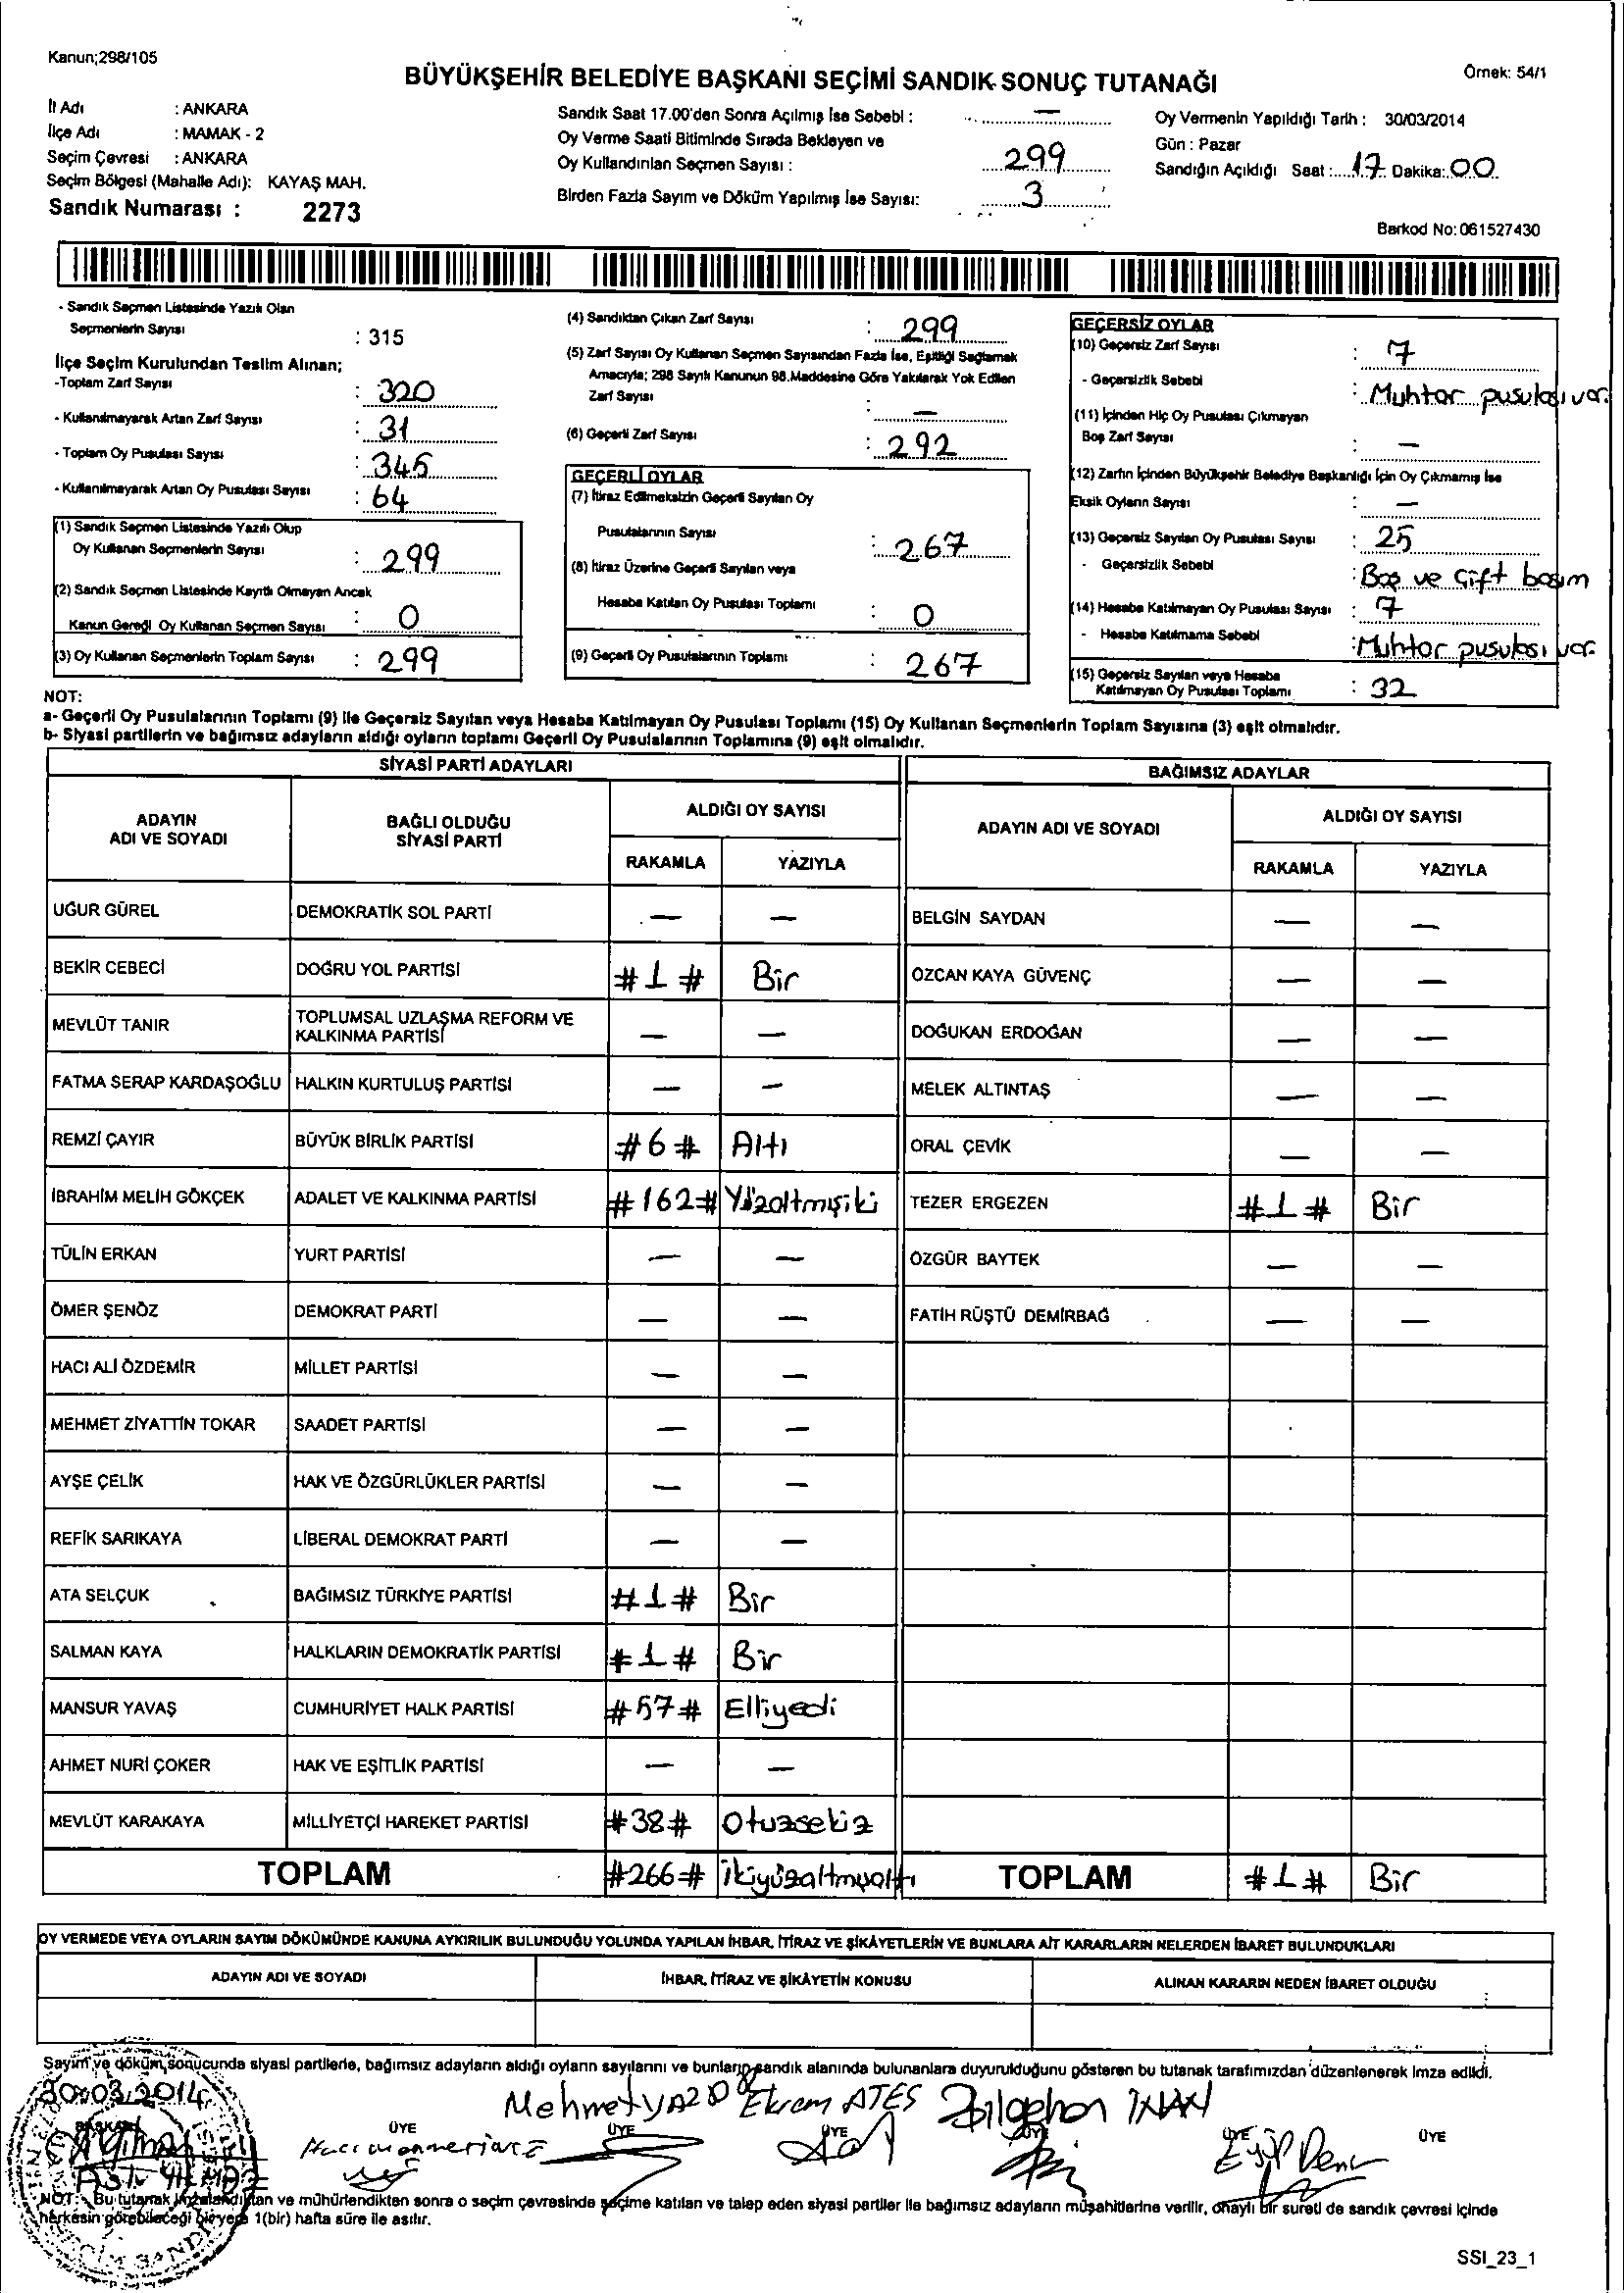 Kanun;298/105
Örnek: 54/1
BÜYÜKŞEHİR BELEDİYE BAŞKANI SEÇİMİ SANDIK SONUÇ TUTANAĞI
İl Adı : ANKARA
İlçe Adı : MAMAK - 2
Seçim Çevresi : ANKARA
Seçim Bölgesi (Mahalle Adı): KAYAŞ MAH.
Sandık Numarası : 2273
Sandık Saat 17.00'den Sonra Açılmış İse Sebebi : —
Oy Verme Saati Bitiminde Sırada Bekleyen ve
Oy Kullandırılan Seçmen Sayısı : 299
Birden Fazla Sayım ve Döküm Yapılmış İse Sayısı: 3
Oy Vermenin Yapıldığı Tarih : 30/03/2014
Gün : Pazar
Sandığın Açıldığı Saat : 17 Dakika: 00
Barkod No: 061527430
- Sandık Seçmen Listesinde Yazılı Olan
Seçmenlerin Sayısı : 315
İlçe Seçim Kurulundan Teslim Alınan;
-Toplam Zarf Sayısı : 320
- Kullanılmayarak Artan Zarf Sayısı : 31
- Toplam Oy Pusulası Sayısı : 345
- Kullanılmayarak Artan Oy Pusulası Sayısı : 64
(1) Sandık Seçmen Listesinde Yazılı Olup
Oy Kullanan Seçmenlerin Sayısı : 299
(2) Sandık Seçmen Listesinde Kayıtlı Olmayan Ancak
Kanun Gereği Oy Kullanan Seçmen Sayısı : 0
(3) Oy Kullanan Seçmenlerin Toplam Sayısı : 299
(4) Sandıktan Çıkan Zarf Sayısı : 299
(5) Zarf Sayısı Oy Kullanan Seçmen Sayısından Fazla İse, Eşitliği Sağlamak
Amacıyla; 298 Sayılı Kanunun 98.Maddesine Göre Yakılarak Yok Edilen
Zarf Sayısı : —
(6) Geçerli Zarf Sayısı : 292
GEÇERLİ OYLAR
(7) İtiraz Edilmeksizin Geçerli Sayılan Oy
Pusulalarının Sayısı : 267
(8) İtiraz Üzerine Geçerli Sayılan veya
Hesaba Katılan Oy Pusulası Toplamı : 0
(9) Geçerli Oy Pusulalarının Toplamı : 267
GEÇERSİZ OYLAR
(10) Geçersiz Zarf Sayısı : 7
- Geçersizlik Sebebi : Muhtar pusulası var.
(11) İçinden Hiç Oy Pusulası Çıkmayan
Boş Zarf Sayısı : —
(12) Zarfın İçinden Büyükşehir Belediye Başkanlığı İçin Oy Çıkmamış İse
Eksik Oyların Sayısı : —
(13) Geçersiz Sayılan Oy Pusulası Sayısı : 25
- Geçersizlik Sebebi : Boş ve Çift basım
(14) Hesaba Katılmayan Oy Pusulası Sayısı : 7
- Hesaba Katılmama Sebebi : Muhtar pusulası var.
(15) Geçersiz Sayılan veya Hesaba
Katılmayan Oy Pusulası Toplamı : 32
NOT:
a- Geçerli Oy Pusulalarının Toplamı (9) ile Geçersiz Sayılan veya Hesaba Katılmayan Oy Pusulası Toplamı (15) Oy Kullanan Seçmenlerin Toplam Sayısına (3) eşit olmalıdır.
b- Siyasi partilerin ve bağımsız adayların aldığı oyların toplamı Geçerli Oy Pusulalarının Toplamına (9) eşit olmalıdır.
SİYASİ PARTİ ADAYLARI
ADAYIN ADI VE SOYADI BAĞLI OLDUĞU SİYASİ PARTİ ALDIĞI OY SAYISI
RAKAMLA YAZIYLA
UĞUR GÜREL DEMOKRATİK SOL PARTİ — —
BEKİR CEBECİ DOĞRU YOL PARTİSİ #1# Bir
MEVLÜT TANIR TOPLUMSAL UZLAŞMA REFORM VE KALKINMA PARTİSİ — —
FATMA SERAP KARDAŞOĞLU HALKIN KURTULUŞ PARTİSİ — —
REMZİ ÇAYIR BÜYÜK BİRLİK PARTİSİ #6# Altı
İBRAHİM MELİH GÖKÇEK ADALET VE KALKINMA PARTİSİ #162# Yüzaltmışiki
TÜLİN ERKAN YURT PARTİSİ — —
ÖMER ŞENÖZ DEMOKRAT PARTİ — —
HACI ALİ ÖZDEMİR MİLLET PARTİSİ — —
MEHMET ZİYATTİN TOKAR SAADET PARTİSİ — —
AYŞE ÇELİK HAK VE ÖZGÜRLÜKLER PARTİSİ — —
REFİK SARIKAYA LİBERAL DEMOKRAT PARTİ — —
ATA SELÇUK BAĞIMSIZ TÜRKİYE PARTİSİ #1# Bir
SALMAN KAYA HALKLARIN DEMOKRATİK PARTİSİ #1# Bir
MANSUR YAVAŞ CUMHURİYET HALK PARTİSİ #57# Elliyedi
AHMET NURİ ÇOKER HAK VE EŞİTLİK PARTİSİ — —
MEVLÜT KARAKAYA MİLLİYETÇİ HAREKET PARTİSİ #38# Otuzsekiz
TOPLAM #266# İkiyüzaltmışaltı
BAĞIMSIZ ADAYLAR
ADAYIN ADI VE SOYADI ALDIĞI OY SAYISI
RAKAMLA YAZIYLA
BELGİN SAYDAN — —
ÖZCAN KAYA GÜVENÇ — —
DOĞUKAN ERDOĞAN — —
MELEK ALTINTAŞ — —
ORAL ÇEVİK — —
TEZER ERGEZEN #1# Bir
ÖZGÜR BAYTEK — —
FATİH RÜŞTÜ DEMİRBAĞ — —
TOPLAM #1# Bir
OY VERMEDE VEYA OYLARIN SAYIM DÖKÜMÜNDE KANUNA AYKIRILIK BULUNDUĞU YOLUNDA YAPILAN İHBAR, İTİRAZ VE ŞİKÂYETLERİN VE BUNLARA AİT KARARLARIN NELERDEN İBARET BULUNDUKLARI
ADAYIN ADI VE SOYADI İHBAR, İTİRAZ VE ŞİKÂYETİN KONUSU ALINAN KARARIN NEDEN İBARET OLDUĞU
Sayım ve döküm sonucunda siyasi partilerle, bağımsız adayların aldığı oyların sayılarını ve bunların sandık alanında bulunanlara duyurulduğunu gösteren bu tutanak tarafımızdan düzenlenerek imza edildi.
30.03.2014
Mehmet Ekrem ATEŞ Bilgehan İNAN
BAŞKAN ÜYE ÜYE ÜYE ÜYE ÜYE ÜYE
NOT: Bu tutanak imzalandıktan ve mühürlendikten sonra o seçim çevresinde seçime katılan ve talep eden siyasi partiler ile bağımsız adayların müşahitlerine verilir, onaylı bir sureti de sandık çevresi içinde
herkesin görebileceği bir yere 1(bir) hafta süre ile asılır.
SSI_23_1